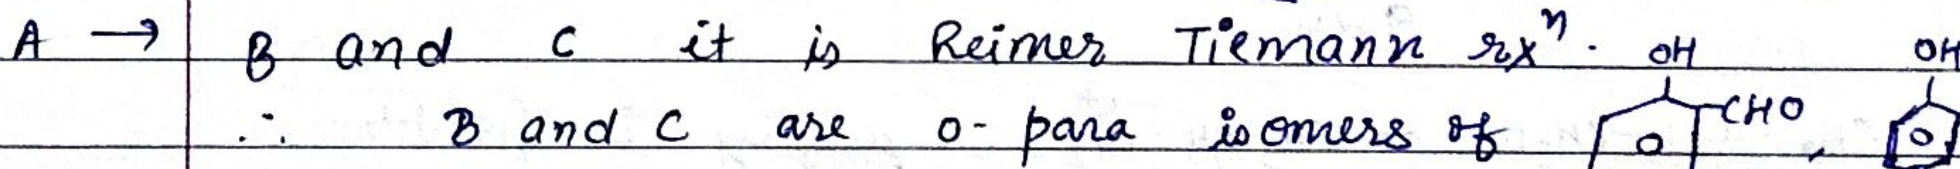 A → B and C it is Reimer Tiemann rxⁿ. OH OH
∴ B and C are o- para isomers of CHO ,